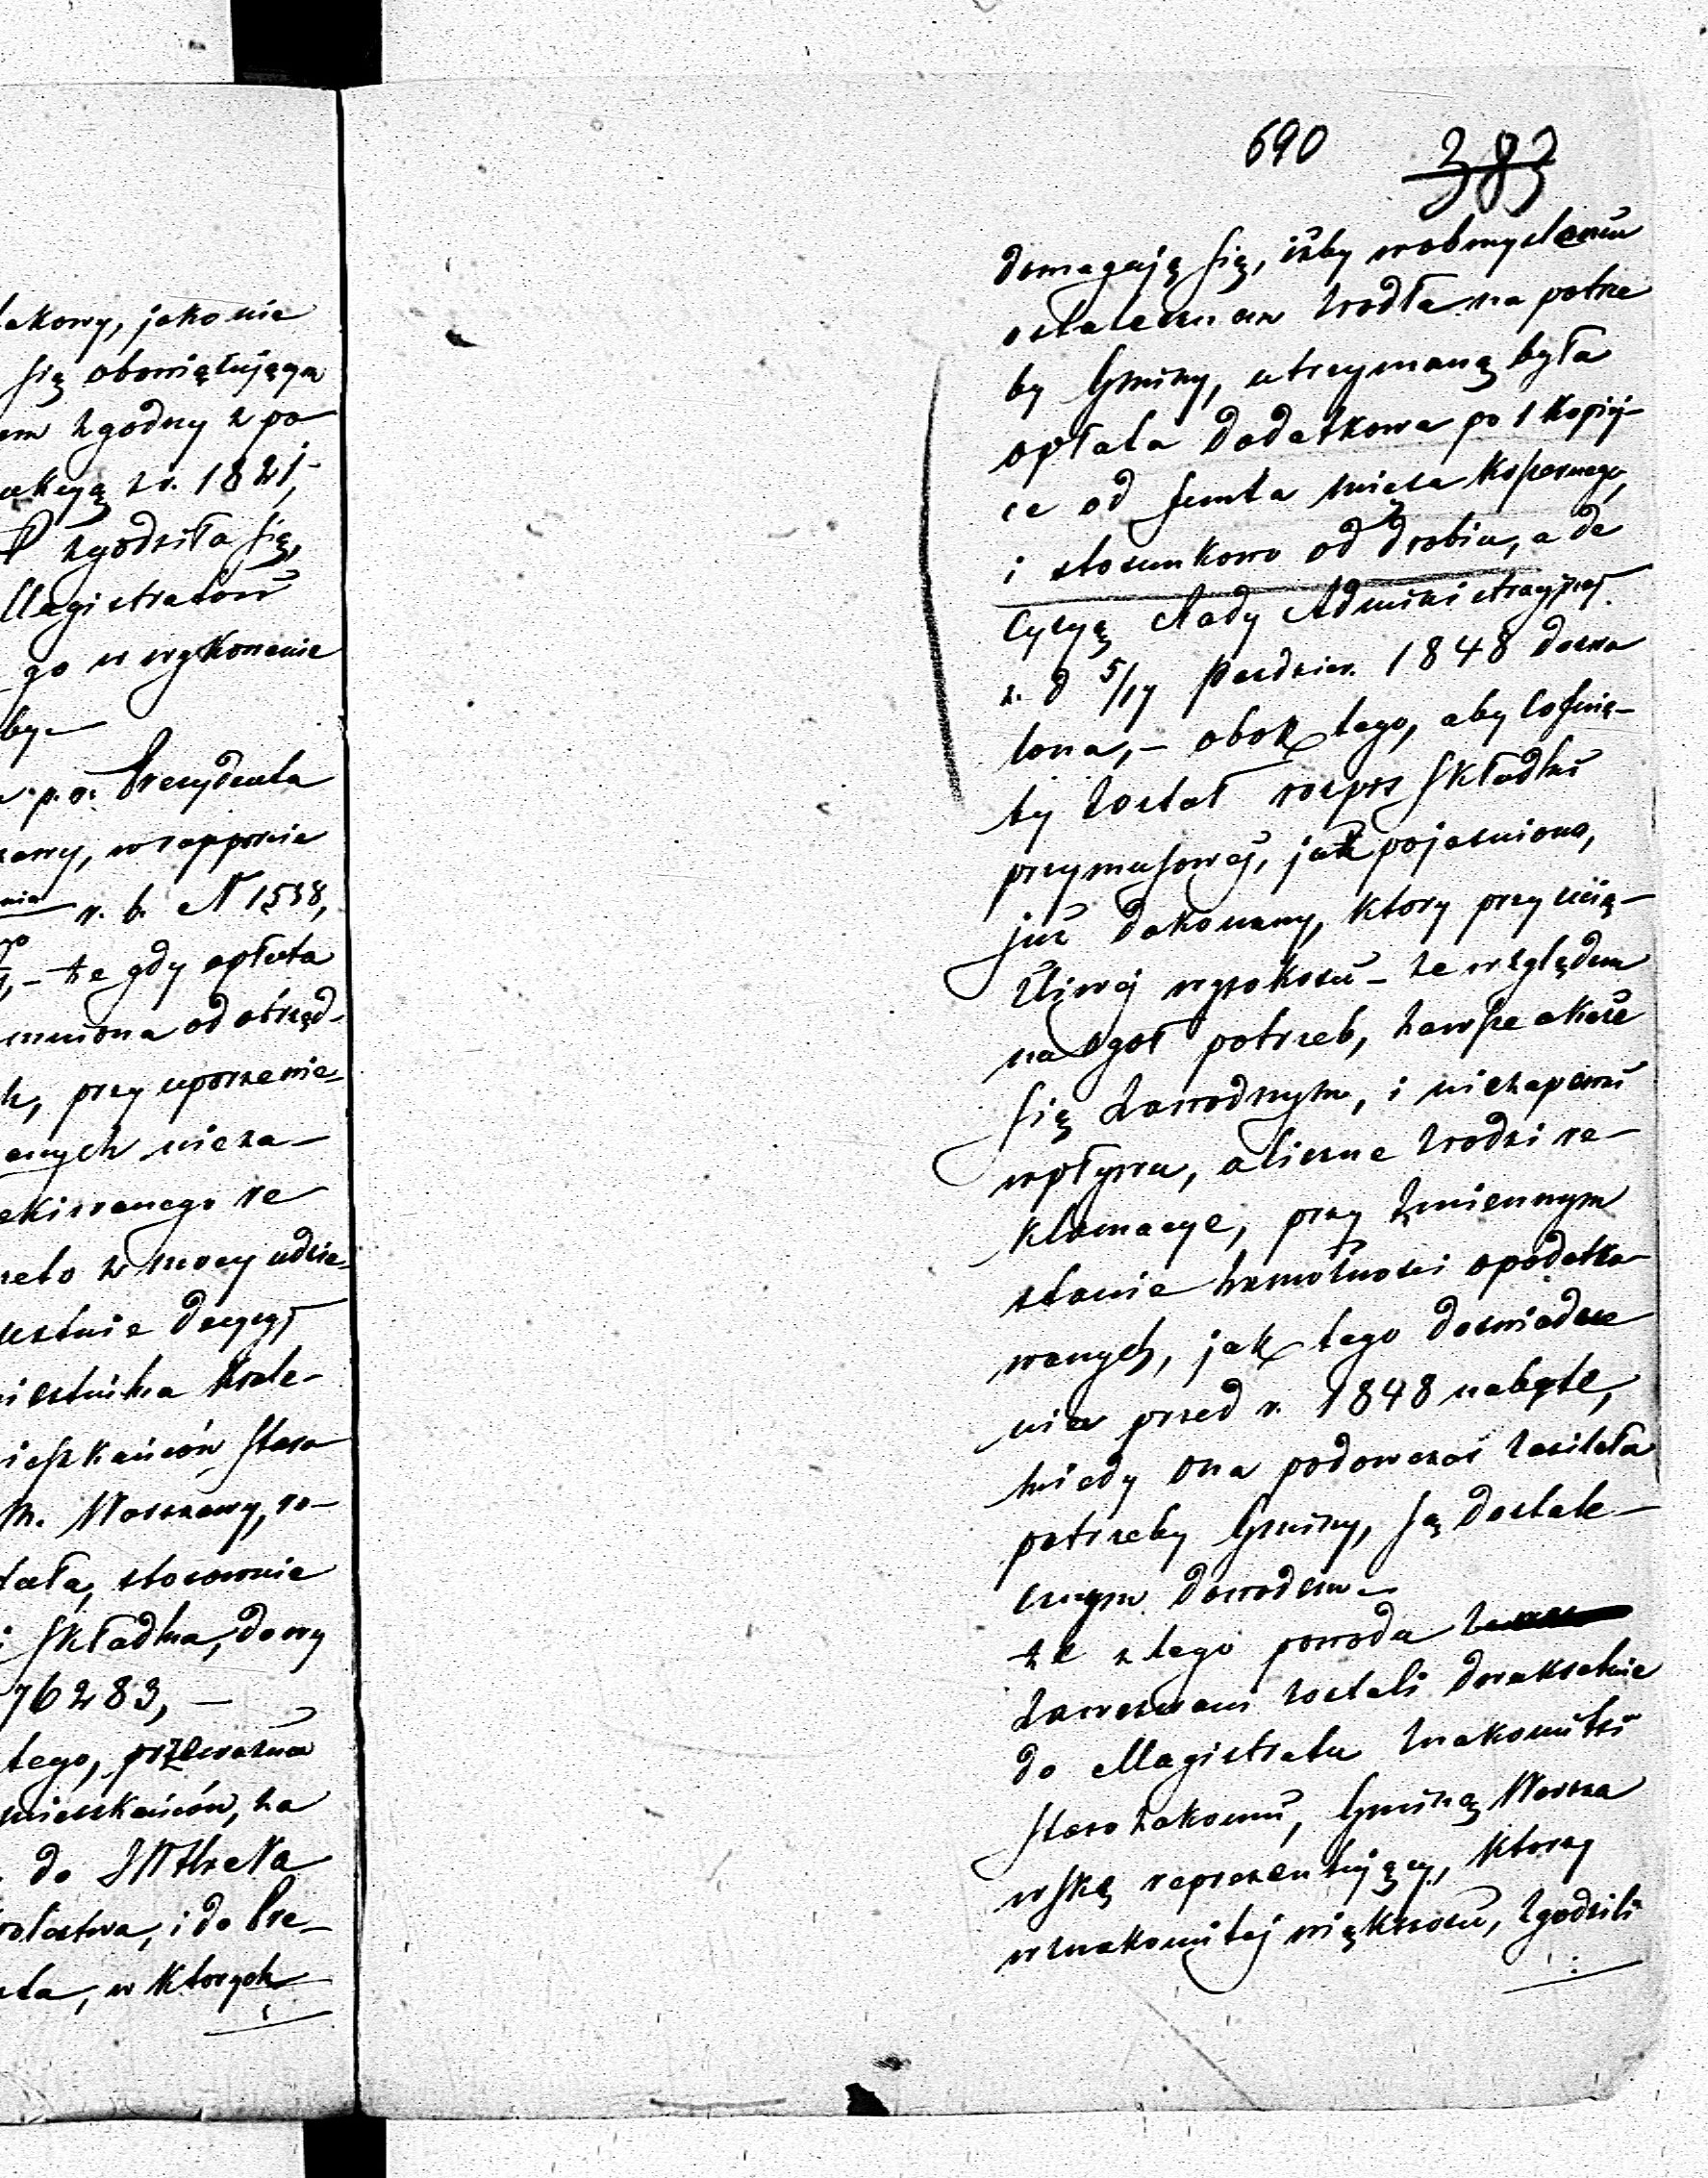 akowy, jako nie
się obowiązującą
em zgodny z po-
akcyą z r. 1821,
P zgodziła się,
Magistratowi
go w wykonanie
by.—
p. o. Prezydenta
zawy, w rapporcie
nia r. b. N 1538,
że gdy opłata
mniona od obrząd-
h, przy uporzenie-
anych nieza-
ekiwanego re
neto z mocy udzie-
ustnie decyzyi
miestnika Króle-
ieszkańców Staro-
m. Warszawy, ro-
tała, stosownie
i Składka, dowy
76283, —
tego, przeważna
mieszkańców, za
do JW Hrabia
rolestwa, i do Pre-
nta, w których
690 383
domagają się, iżby w obmyśleniu
ostatecznem zrodła na potrze
by Gminy, utrzymaną była
opłata dodatkowa po 1 kopij-
ce od funta mięsa kosnernego,
i stosunkowo od drobiu, a de
cyzyą Rady Administracyjnej
z d 5/17 Pazdzier. 1848 dozwo
lona, — obok tego, aby cofnię-
ty został rospis składki
przymusowej, jak pojasniono,
już dokonany, ktory przy ucią-
żliwej wysokości — ze względem
na ogół potrzeb, zawsze okaże
się zawodnym, i niezapewni
wpływu, a liczne zrodzi re-
klamacye, przy zmiennym
stanie zamożności opodatko-
wanych, jak tego doswiadcze
nia przed r. 1848 nabyte,
kiedy ona podowczas zasilała
potrzeby Gminy, są dostate-
cznym dowodem —
że z tego powodu
zawezwani zostali dwukrotnie
do Magistratu znakomitsi
Starozakonni, Gminę Warsza
wską reprezentujący, ktorzy
w znakomitej większości, zgodzili